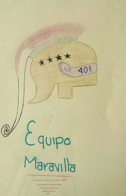 401
Equipo
Maravilla